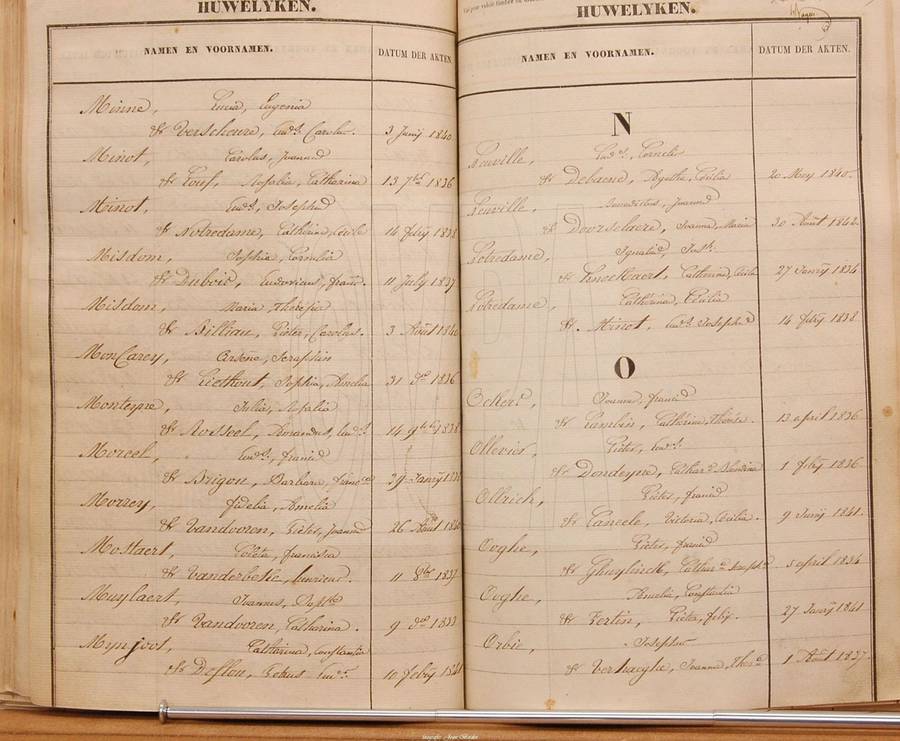 HUWELYKEN.
NAMEN EN VOORNAMEN. DATUM DER AKTEN.
Minne, Lucia, Eugenia
& Verscheure, Lud. Carolus. 3 Junij 1840
Minot, Carolus, Joannes
& Louf, Rosalia, Catharina 13 7bre 1836
Minot, Lud. Josephus
& Notredame, Catharina, Cecile 14 febry 1838
Misdom, Sophia, Cornelia
& Dubois, Ludovicus, franc. 11 July 1837
Misdom, Maria Theresia
& Billiau, Pieter, Carolus. 3 Aout 1840
MonCarey, Arsene, Seraphin
& Liefhout, Sophia, Amelia 31 1836
Monteyne, Julia, Rosalia
& Rossel, Amandus, Lud. 14 9bre 1838
Morcel, Lud. francis
& Brigou, Barbara, franc 29 Janry
Morrey, Fidelia, Amelia
& Vandooren, Pieter, Joannes 26 Aout
Mostaert, Coleta, francisca
& Vanderbeke, henricus. 11 8bre 1837
Muylaert, Joannes, Bapte
& Vandooren, Catharina. 9 1833
Mynjoot, Catharina, Constantia
& Deflou, Petrus Lud. 10 febry 1841
HUWELYKEN.
NAMEN EN VOORNAMEN. DATUM DER AKTEN.
N
Neuville, Lud. Cornelis
& Debaene, Agathe, Cecilia 20 Mey 1840.
Neuville, Benedictus, Joannes
& Doorselaere, Joanna, Maria 30 Aout 1842
Notredame, Ignatius, Jos.
& Knockaert, Catherina, Cecilia 27 Janry 1834
Notredame, Catharina, Cecilia
& Minot, Lud. Josephus 14 febry 1838
O
Ockers, Joannes, francis
& Lambin, Catharina, Theresia 13 april 1836
Ollevier, Pieter, Lud.
& Dondeyne, Cathar. Blandina 1 febry 1836
Ollrich, Pieter, francis
& Cancele, Victoria, Cecilia. 9 Junij 1841.
Ooghe, Pieter, francis
& Ghuylinck, Cathar. Joseph 5 april 1834
Ooghe, Amelia, Constantia
& Fertin, Pieter, felix. 27 Janry 1841
Orbie, Josephus
& Verhaeghe, Joanna, Theres 1 Aout 1837.